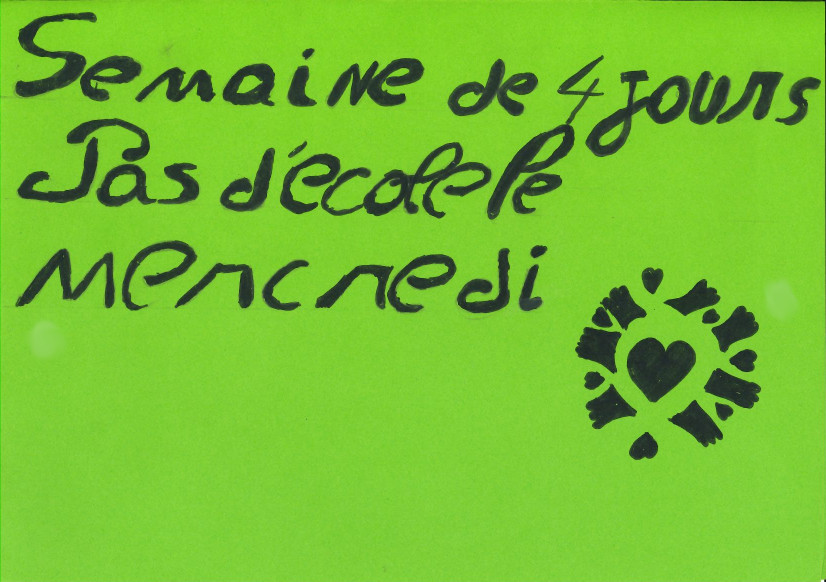 Semaine de 4 jours
Pas d'école le
Mercredi